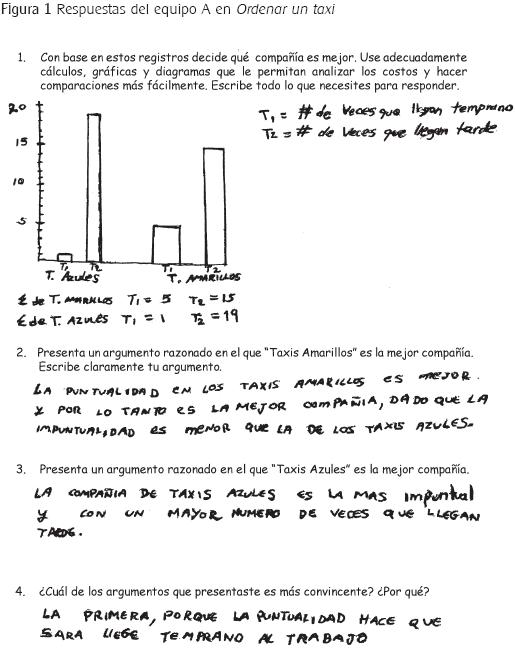 Figura 1 Respuestas del equipo A en Ordenar un taxi
1. Con base en estos registros decide qué compañía es mejor. Use adecuadamente
cálculos, gráficas y diagramas que le permitan analizar los costos y hacer
comparaciones más fácilmente. Escribe todo lo que necesites para responder.
T1 = # de veces que llegan temprano
T2 = # de veces que llegan tarde
20
15
10
5
T1 T2 T1 T2
T. Azules T. AMARILLOS
Σ de T. AMARILLOS T1 = 5 T2 = 15
Σ de T. AZULES T1 = 1 T2 = 19
2. Presenta un argumento razonado en el que "Taxis Amarillos" es la mejor compañía.
Escribe claramente tu argumento.
LA PUNTUALIDAD EN LOS TAXIS AMARILLOS ES MEJOR.
Y POR LO TANTO ES LA MEJOR COMPAÑIA, DADO QUE LA
IMPUNTUALIDAD ES MENOR QUE LA DE LOS TAXIS AZULES.
3. Presenta un argumento razonado en el que "Taxis Azules" es la mejor compañía.
LA COMPAÑIA DE TAXIS AZULES ES LA MAS impuntual
Y CON UN MAYOR NUMERO DE VECES QUE LLEGAN
TARDE.
4. ¿Cuál de los argumentos que presentaste es más convincente? ¿Por qué?
LA PRIMERA, PORQUE LA PUNTUALIDAD HACE QUE
SARA LLEGE TEMPRANO AL TRABAJO